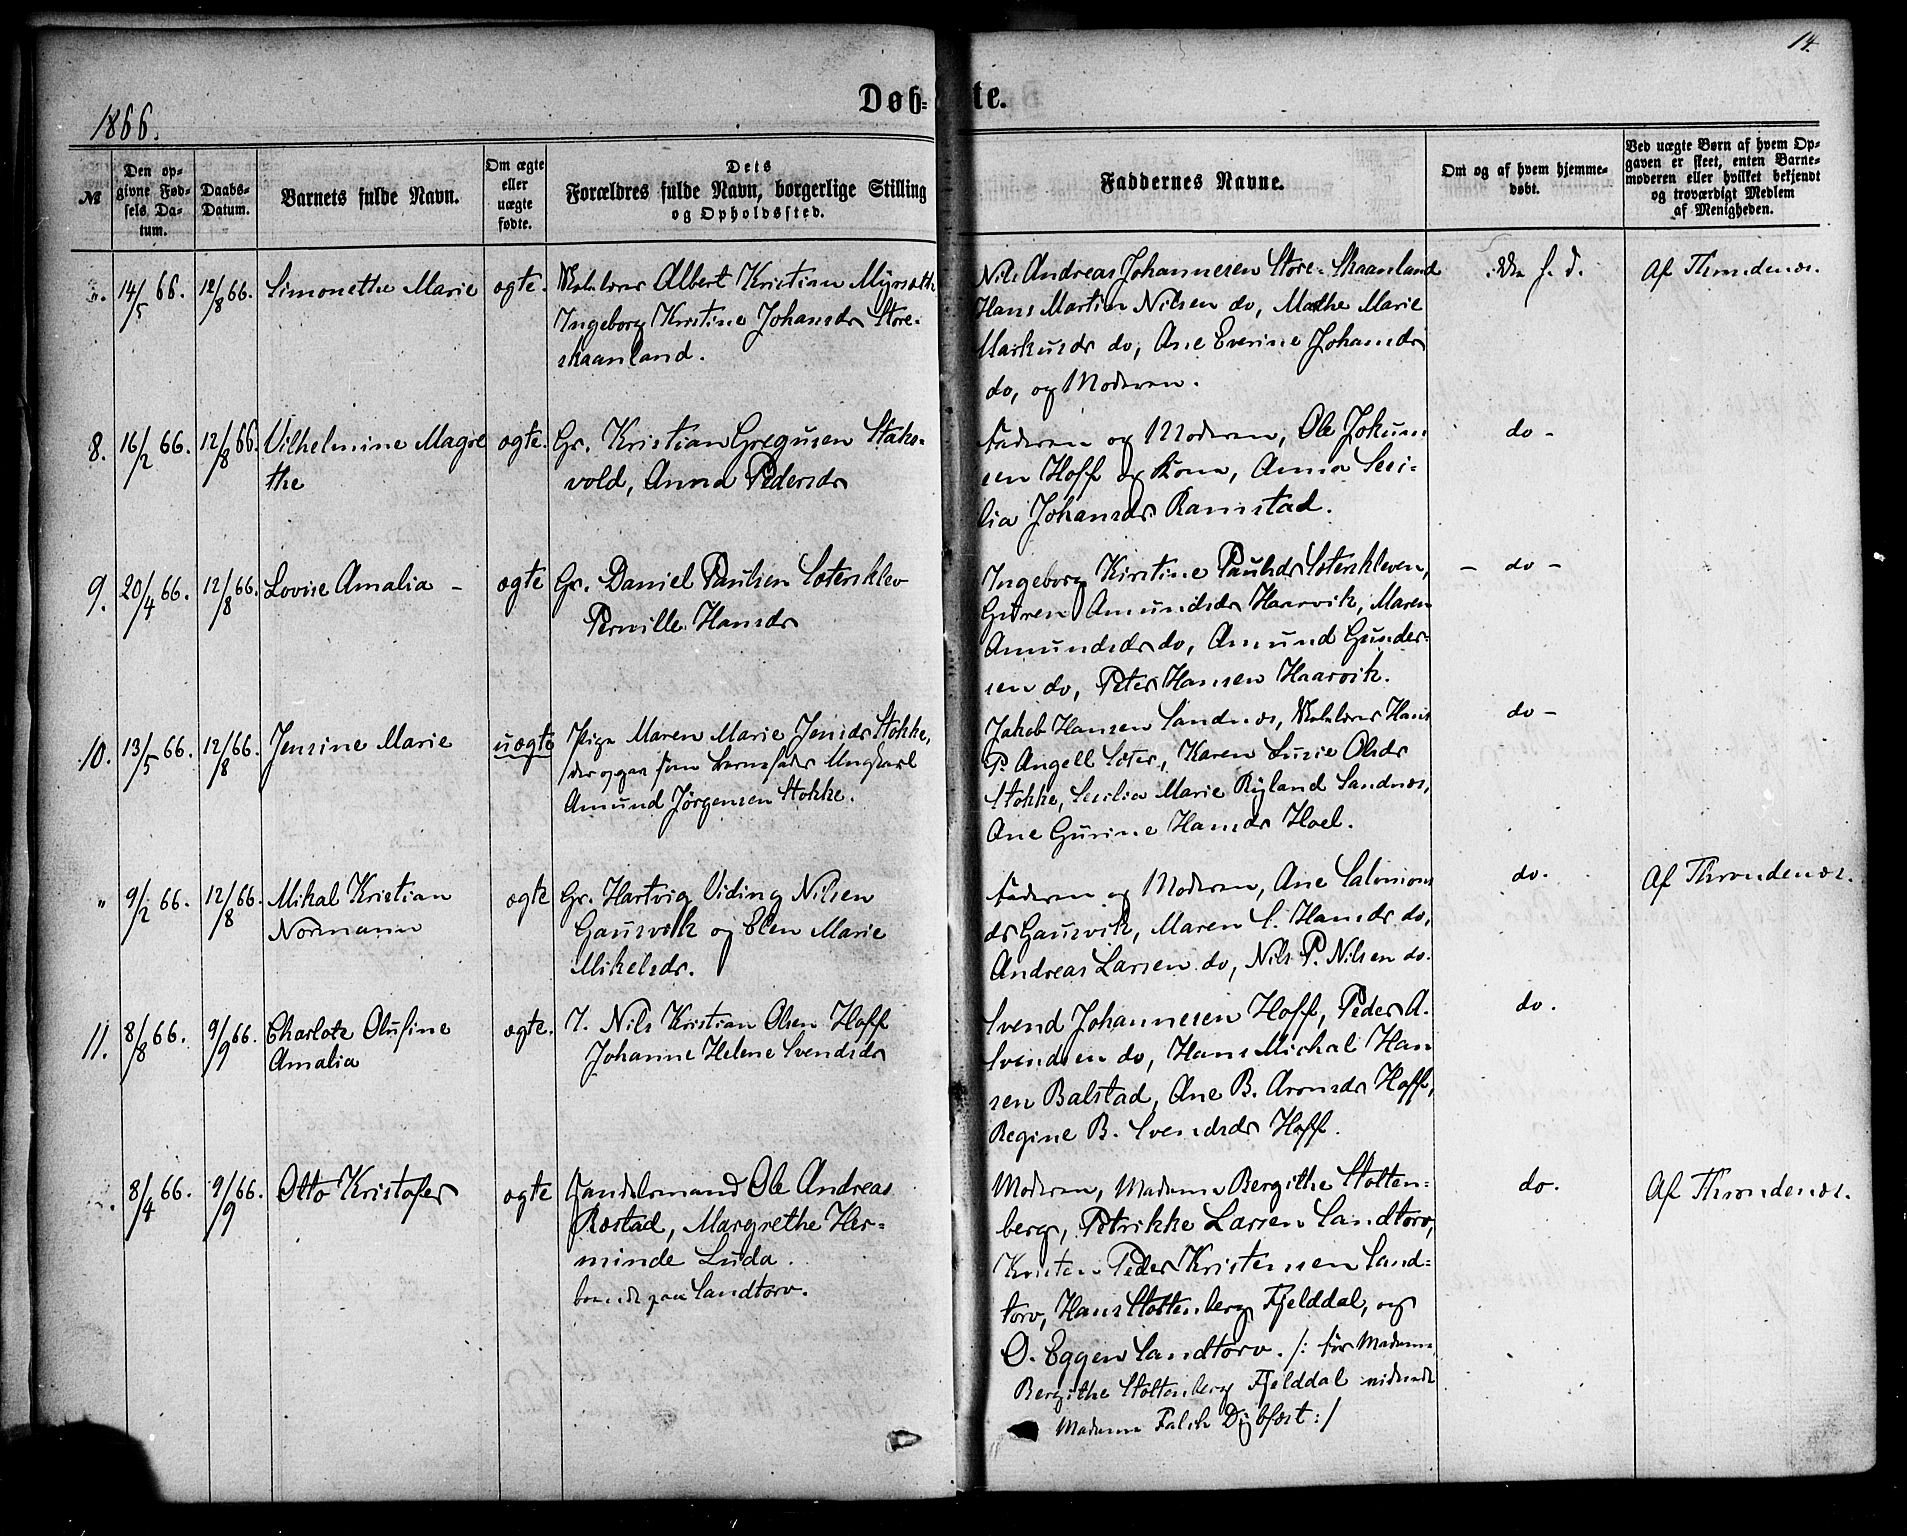 14.
1866.
Døb- te.
№
Den opgivne Fødsels Datum.
Daabs-Datum.
Barnets fulde Navn.
Om ægte eller uægte fødte.
Dets Forældres fulde Navn, borgerlige Stilling og Opholdssted.
Faddernes Navne.
Om og af hvem hjemmedøbt.
Ved uægte Børn af hvem Opgaven er skeet, enten Barnemoderen eller hvilket bekjendt og troværdigt Medlem af Menigheden.
14/5 66. 12/8 66. Simonethe Marie ægte.
Albert Kristian
Ingeborg Kristine Johansdr Store-
skaanland.
Nils Andreas Johannesen Store-Skaanland
Hans Martin Nilsen do, Marthe Marie
Markusdr do, Ane Everine Johansdr
do, og Moderen.
Af Throndenæs.
8. 16/2 66. 12/8 66. Vilhelmine Magre
the
ægte. Gr. Kristian Gregusen Staks-
vold, Anna Pedersdr
Faderen og Moderen, Ole Johan-
sen Hoff og Kone, Anna Sesi-
lia Johansdr Ramstad.
do -
9. 20/4 66. 12/8 66. Lovise Amalia -
ægte Gr. Daniel Paulsen Sætersklev
Pernille Hansdr
Ingeborg Kirstine Paulsdr Sæterskleven,
Guren Amundsdr Haarvik, Maren
Amundsdr do, Amund Gunder-
sen do, Peter Hansen Haarvik.
- do -
10. 13/5 66. 12/8 66. Jensine Marie
uægte Pige Maren Marie Jensdr Stokke,
der opgav som Barnefader Ungkarl
Amund Jørgensen Stokke.
Jakob Hansen Sandnæs, Hans
P. Angell Sæter, Karen Lusie Olsdr
Stokke, Sesilia Marie Ryland Sandnæs,
Ane Gurine Hansdr Hoel.
do -
" 9/2 66. 12/8 66. Mikal Kristian
Normann
ægte Gr. Hartvig Viding Nilsen
Gausvik og Elen Marie
Mikelsdr.
Faderen og Moderen, Ane Salomons
dr Gausvik, Maren S. Hansdr do,
Andreas Larsen do, Nils P. Nilsen do.
do.
Af Throndenæs.
11. 8/8 66. 9/9 66. Charlote Olufine
Amalia
ægte. I. Nils Kristian Olsen Hoff
Johanne Helene Svendsdr
Svend Johannesen Hoff, Peder A.
Svendsen do, Hans Michal Han
sen Balstad, Ane B. Aronsdr Hoff,
Regine B. Svendsdr Hoff.
do.
8/4 66. 9/9 66. Otto Kristofer
ægte Handelsmand Ole Andreas
Røstad, Margrethe Her-
minde Luda.
boende paa Sandtorv.
Moderen, Madame Bergithe Stolten-
berg, Petrikke Larsen Sandtorv,
Peder Kristensen Sand-
torv, Hans Stoltenberg Fjelddal, og
O. Eggen Sandtorv. /: for Madame
Bergithe Stoltenberg Fjelddal
Madame Falch Dybfæst :/
do.
Af Throndenæs.